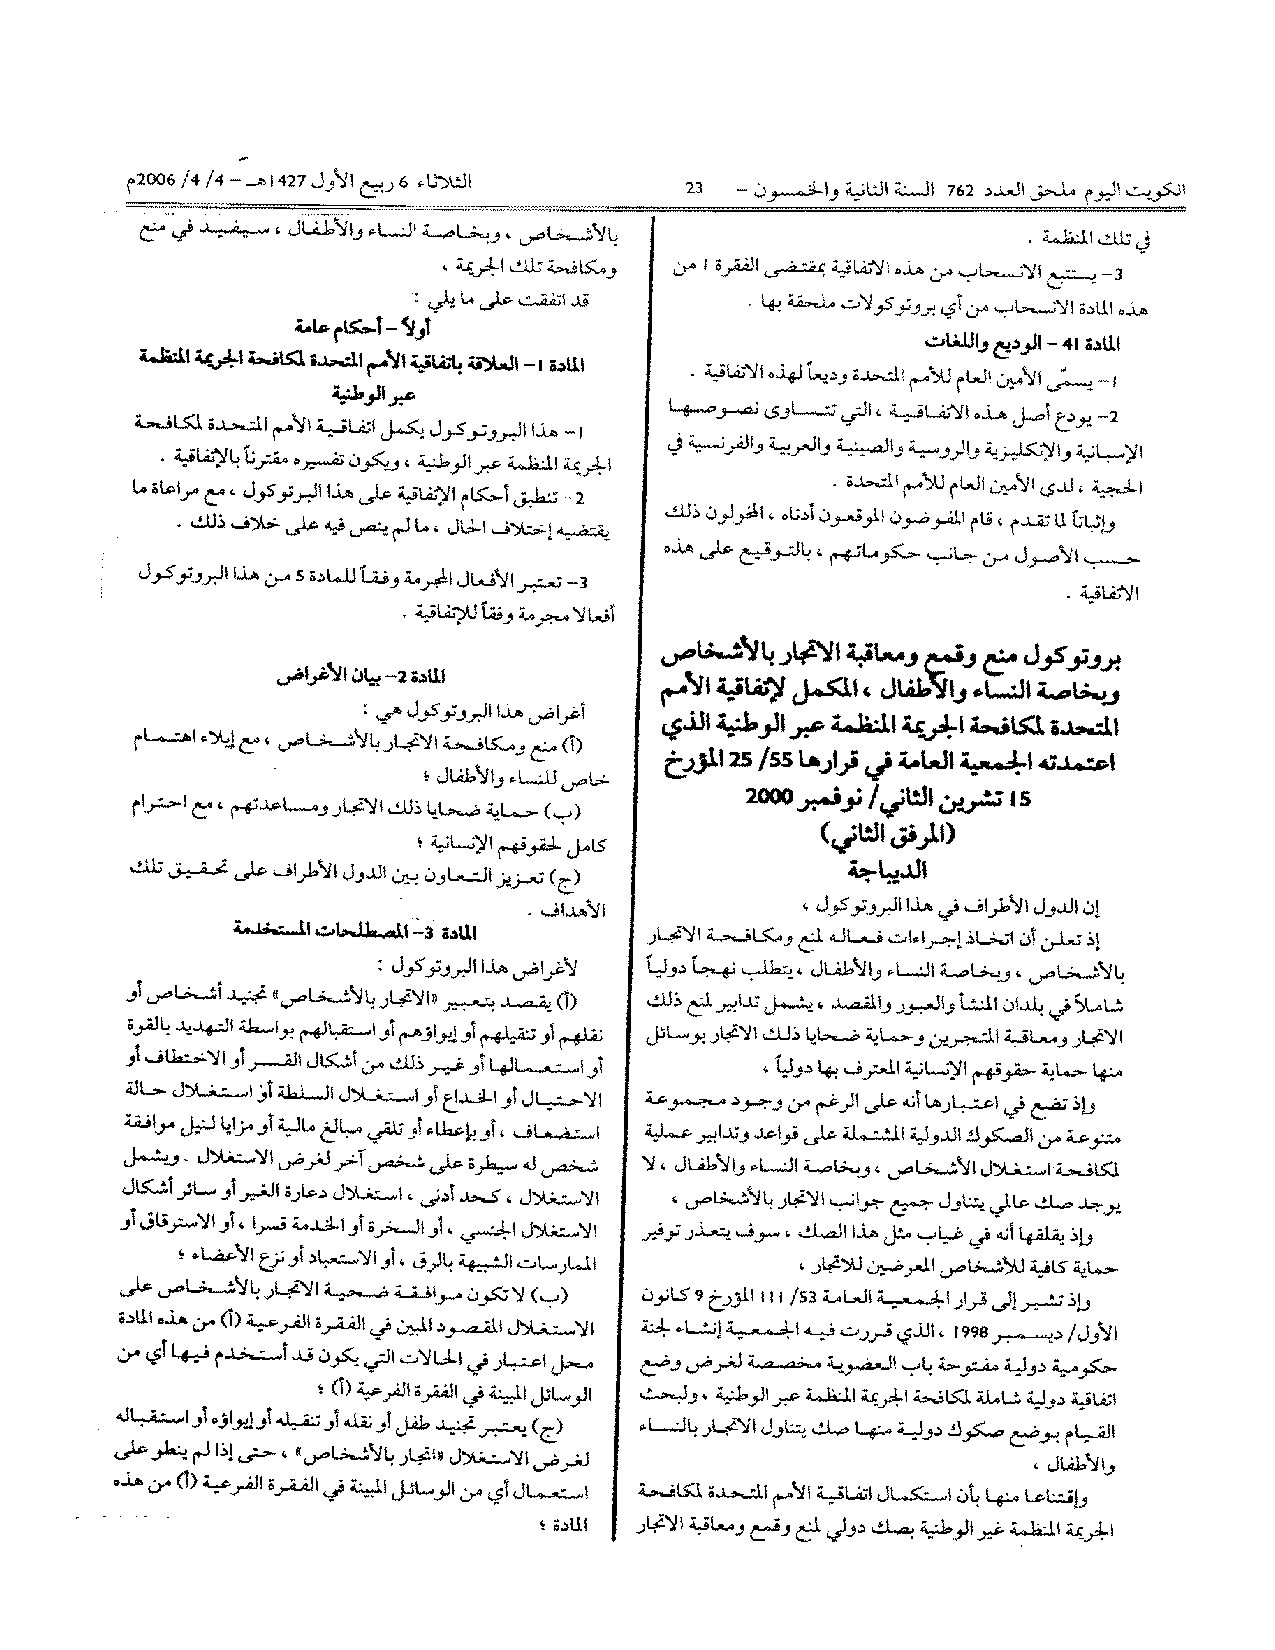 الكويت اليوم ملحق العدد 762 السنة الثانية والخمسون – 23
الثلاثاء 6 ربيع الأول 1427هـ – 4/ 4/ 2006م
في تلك المنظمة .
3- يستتبع الانسحاب من هذه الاتفاقية بمقتضى الفقرة 1 من
هذه المادة الانسحاب من أي بروتوكولات ملحقة بها .
المادة 41 – الوديع واللغات
1- يسمّى الأمين العام للأمم المتحدة وديعاً لهذه الاتفاقية .
2- يودع أصل هذه الاتفاقية ، التي تتساوى نصوصها
الإسبانية والإنكليزية والروسية والصينية والعربية والفرنسية في
الحجية ، لدى الأمين العام للأمم المتحدة .
وإثباتاً لما تقدم ، قام المفوضون الموقعون أدناه ، المخولون ذلك
حسب الأصول من جانب حكوماتهم ، بالتوقيع على هذه
الاتفاقية .
بروتوكول منع وقمع ومعاقبة الاتجار بالأشخاص
وبخاصة النساء والأطفال ، المكمل لإتفاقية الأمم
المتحدة لمكافحة الجريمة المنظمة عبر الوطنية الذي
اعتمدته الجمعية العامة في قرارها 55/ 25 المؤرخ
15 تشرين الثاني/ نوفمبر 2000
(المرفق الثاني)
الديباجة
إن الدول الأطراف في هذا البروتوكول ،
إذ تعلن أن اتخاذ إجراءات فعاله لمنع ومكافحة الاتجار
بالأشخاص ، وبخاصة النساء والأطفال ، يتطلب نهجاً دولياً
شاملاً في بلدان المنشأ والعبور والمقصد ، يشمل تدابير لمنع ذلك
الاتجار ومعاقبة المتجرين وحماية ضحايا ذلك الاتجار بوسائل
منها حماية حقوقهم الإنسانية المعترف بها دولياً ،
وإذ تضع في اعتبارها أنه على الرغم من وجود مجموعة
متنوعة من الصكوك الدولية المشتملة على قواعد وتدابير عملية
لمكافحة استغلال الأشخاص ، وبخاصة النساء والأطفال ، لا
يوجد صك عالمي يتناول جميع جوانب الاتجار بالأشخاص ،
وإذ يقلقها أنه في غياب مثل هذا الصك ، سوف يتعذر توفير
حماية كافية للأشخاص المعرضين للاتجار ،
وإذ تشير إلى قرار الجمعية العامة 53/ 111 المؤرخ 9 كانون
الأول/ ديسمبر 1998 ، الذي قررت فيه الجمعية إنشاء لجنة
حكومية دولية مفتوحة باب العضوية مخصصة لغرض وضع
اتفاقية دولية شاملة لمكافحة الجريمة المنظمة عبر الوطنية ، ولبحث
القيام بوضع صكوك دولية منها صك يتناول الاتجار بالنساء
والأطفال ،
وإقتناعا منها بأن استكمال اتفاقية الأمم المتحدة لمكافحة
الجريمة المنظمة غير الوطنية بصك دولي لمنع وقمع ومعاقبة الاتجار
بالأشخاص ، وبخاصة النساء والأطفال ، سيفيد في منع
ومكافحة تلك الجريمة ،
قد اتفقت على ما يلي :
أولاً – أحكام عامة
المادة 1- العلاقة باتفاقية الأمم المتحدة لمكافحة الجريمة المنظمة
عبر الوطنية
1- هذا البروتوكول يكمل اتفاقية الأمم المتحدة لمكافحة
الجريمة المنظمة عبر الوطنية ، ويكون تفسيره مقترناً بالإتفاقية .
2- تنطبق أحكام الإتفاقية على هذا البرتوكول ، مع مراعاة ما
يقتضيه إختلاف الحال ، ما لم ينص فيه على خلاف ذلك .
3- تعتبر الأفعال المجرمة وفقاً للمادة 5 من هذا البروتوكول
أفعالا مجرمة وفقاً للإتفاقية .
المادة 2- بيان الأغراض
أغراض هذا البروتوكول هي :
(أ) منع ومكافحة الاتجار بالأشخاص ، مع إيلاء اهتمام
خاص للنساء والأطفال ؛
(ب) حماية ضحايا ذلك الاتجار ومساعدتهم ، مع احترام
كامل لحقوقهم الإنسانية ؛
(ج) تعزيز التعاون بين الدول الأطراف على تحقيق تلك
الأهداف .
المادة 3- المصطلحات المستخدمة
لأغراض هذا البروتوكول :
(أ) يقصد بتعبير «الاتجار بالأشخاص» تجنيد أشخاص أو
نقلهم أو تنقيلهم أو إيواؤهم أو استقبالهم بواسطة التهديد بالقرة
أو استعمالها أو غير ذلك من أشكال القسر أو الاختطاف أو
الاحتيال أو الخداع أو استغلال السلطة أو استغلال حالة
استضعاف ، أو بإعطاء أو تلقي مبالغ مالية أو مزايا لنيل موافقة
شخص له سيطرة على شخص آخر لغرض الاستغلال . ويشمل
الاستغلال ، كحد أدنى ، استغلال دعارة الغير أو سائر أشكال
الاستغلال الجنسي ، أو السخرة أو الخدمة قسرا ، أو الاسترقاق أو
الممارسات الشبيهة بالرق ، أو الاستعباد أو نزع الأعضاء ؛
(ب) لا تكون موافقة ضحية الاتجار بالأشخاص على
الاستغلال المقصود المبين في الفقرة الفرعية (أ) من هذه المادة
محل اعتبار في الحالات التي يكون قد أستخدم فيها أي من
الوسائل المبينة في الفقرة الفرعية (أ) ؛
(ج) يعتبر تجنيد طفل أو نقله أو تنقيله أو إيواؤه أو استقباله
لغرض الاستغلال «اتجار بالأشخاص» ، حتى إذا لم ينطو على
استعمال أي من الوسائل المبينة في الفقرة الفرعية (أ) من هذه
المادة ؛